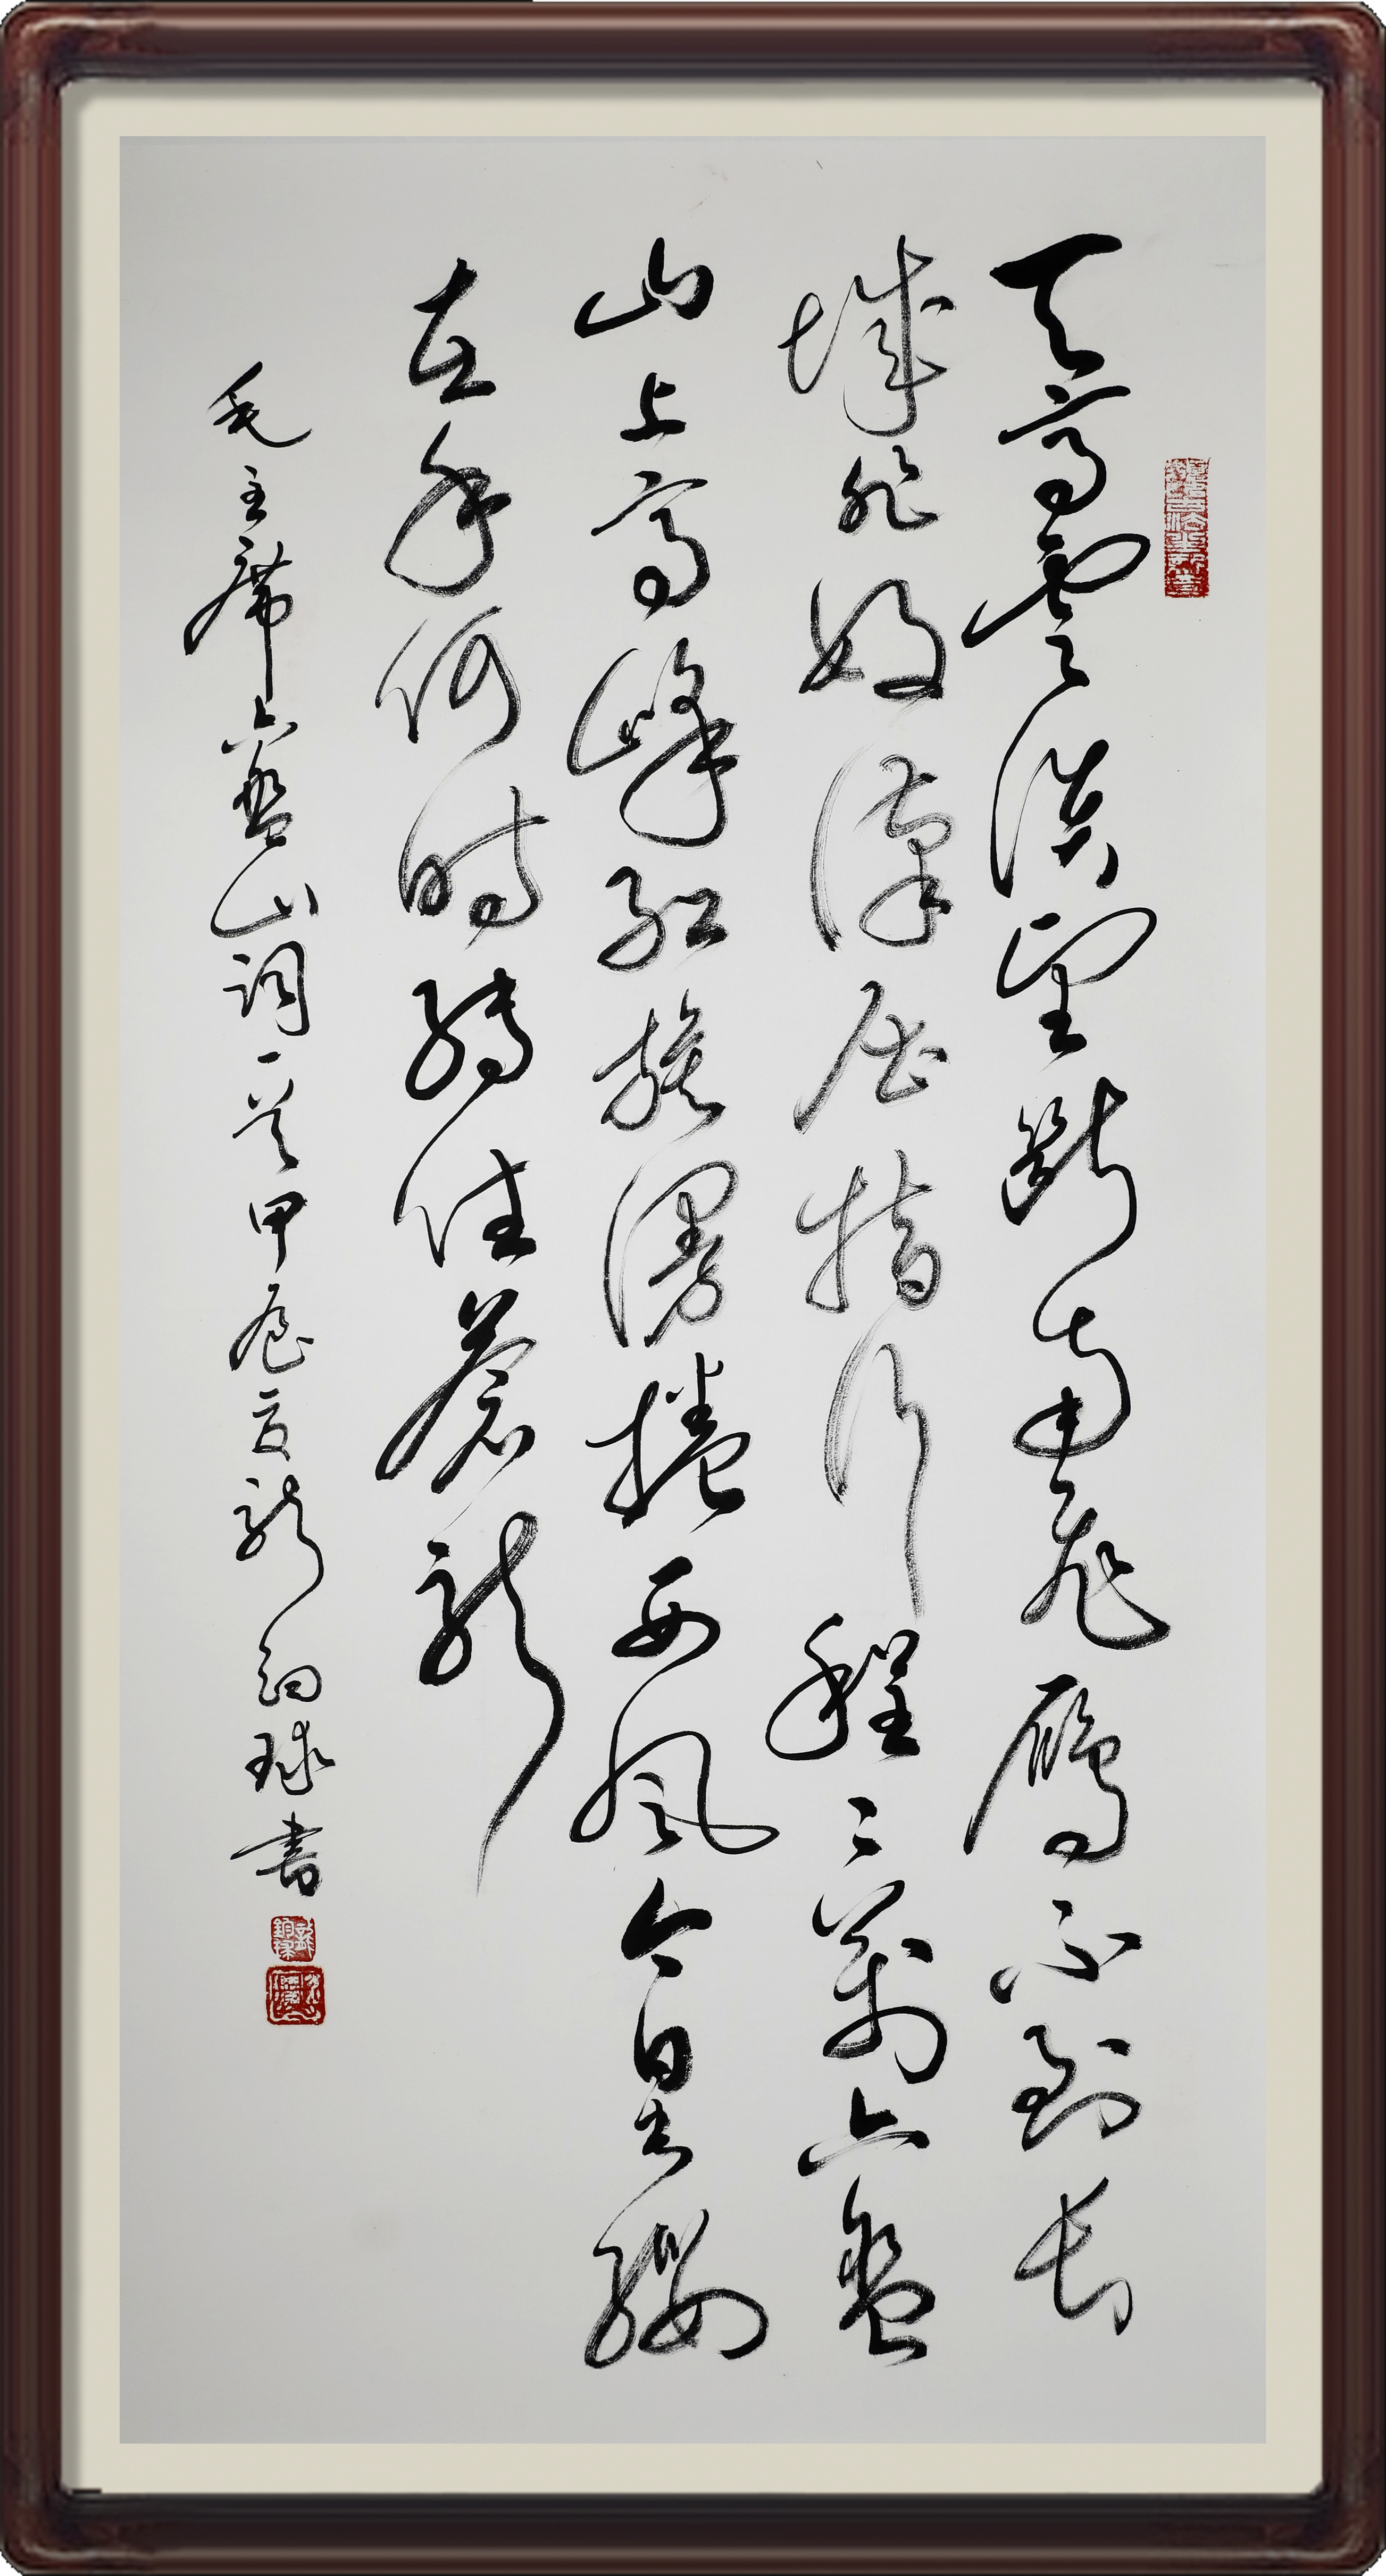 天高雲淡望斷南飛鴈不到长
城非好漢屈指行程二萬六盤
山上高峰紅旗漫捲西風今日长纓
在手何時縛住蒼龍
毛主席六盤山詞一首甲辰夏龍鈞球書